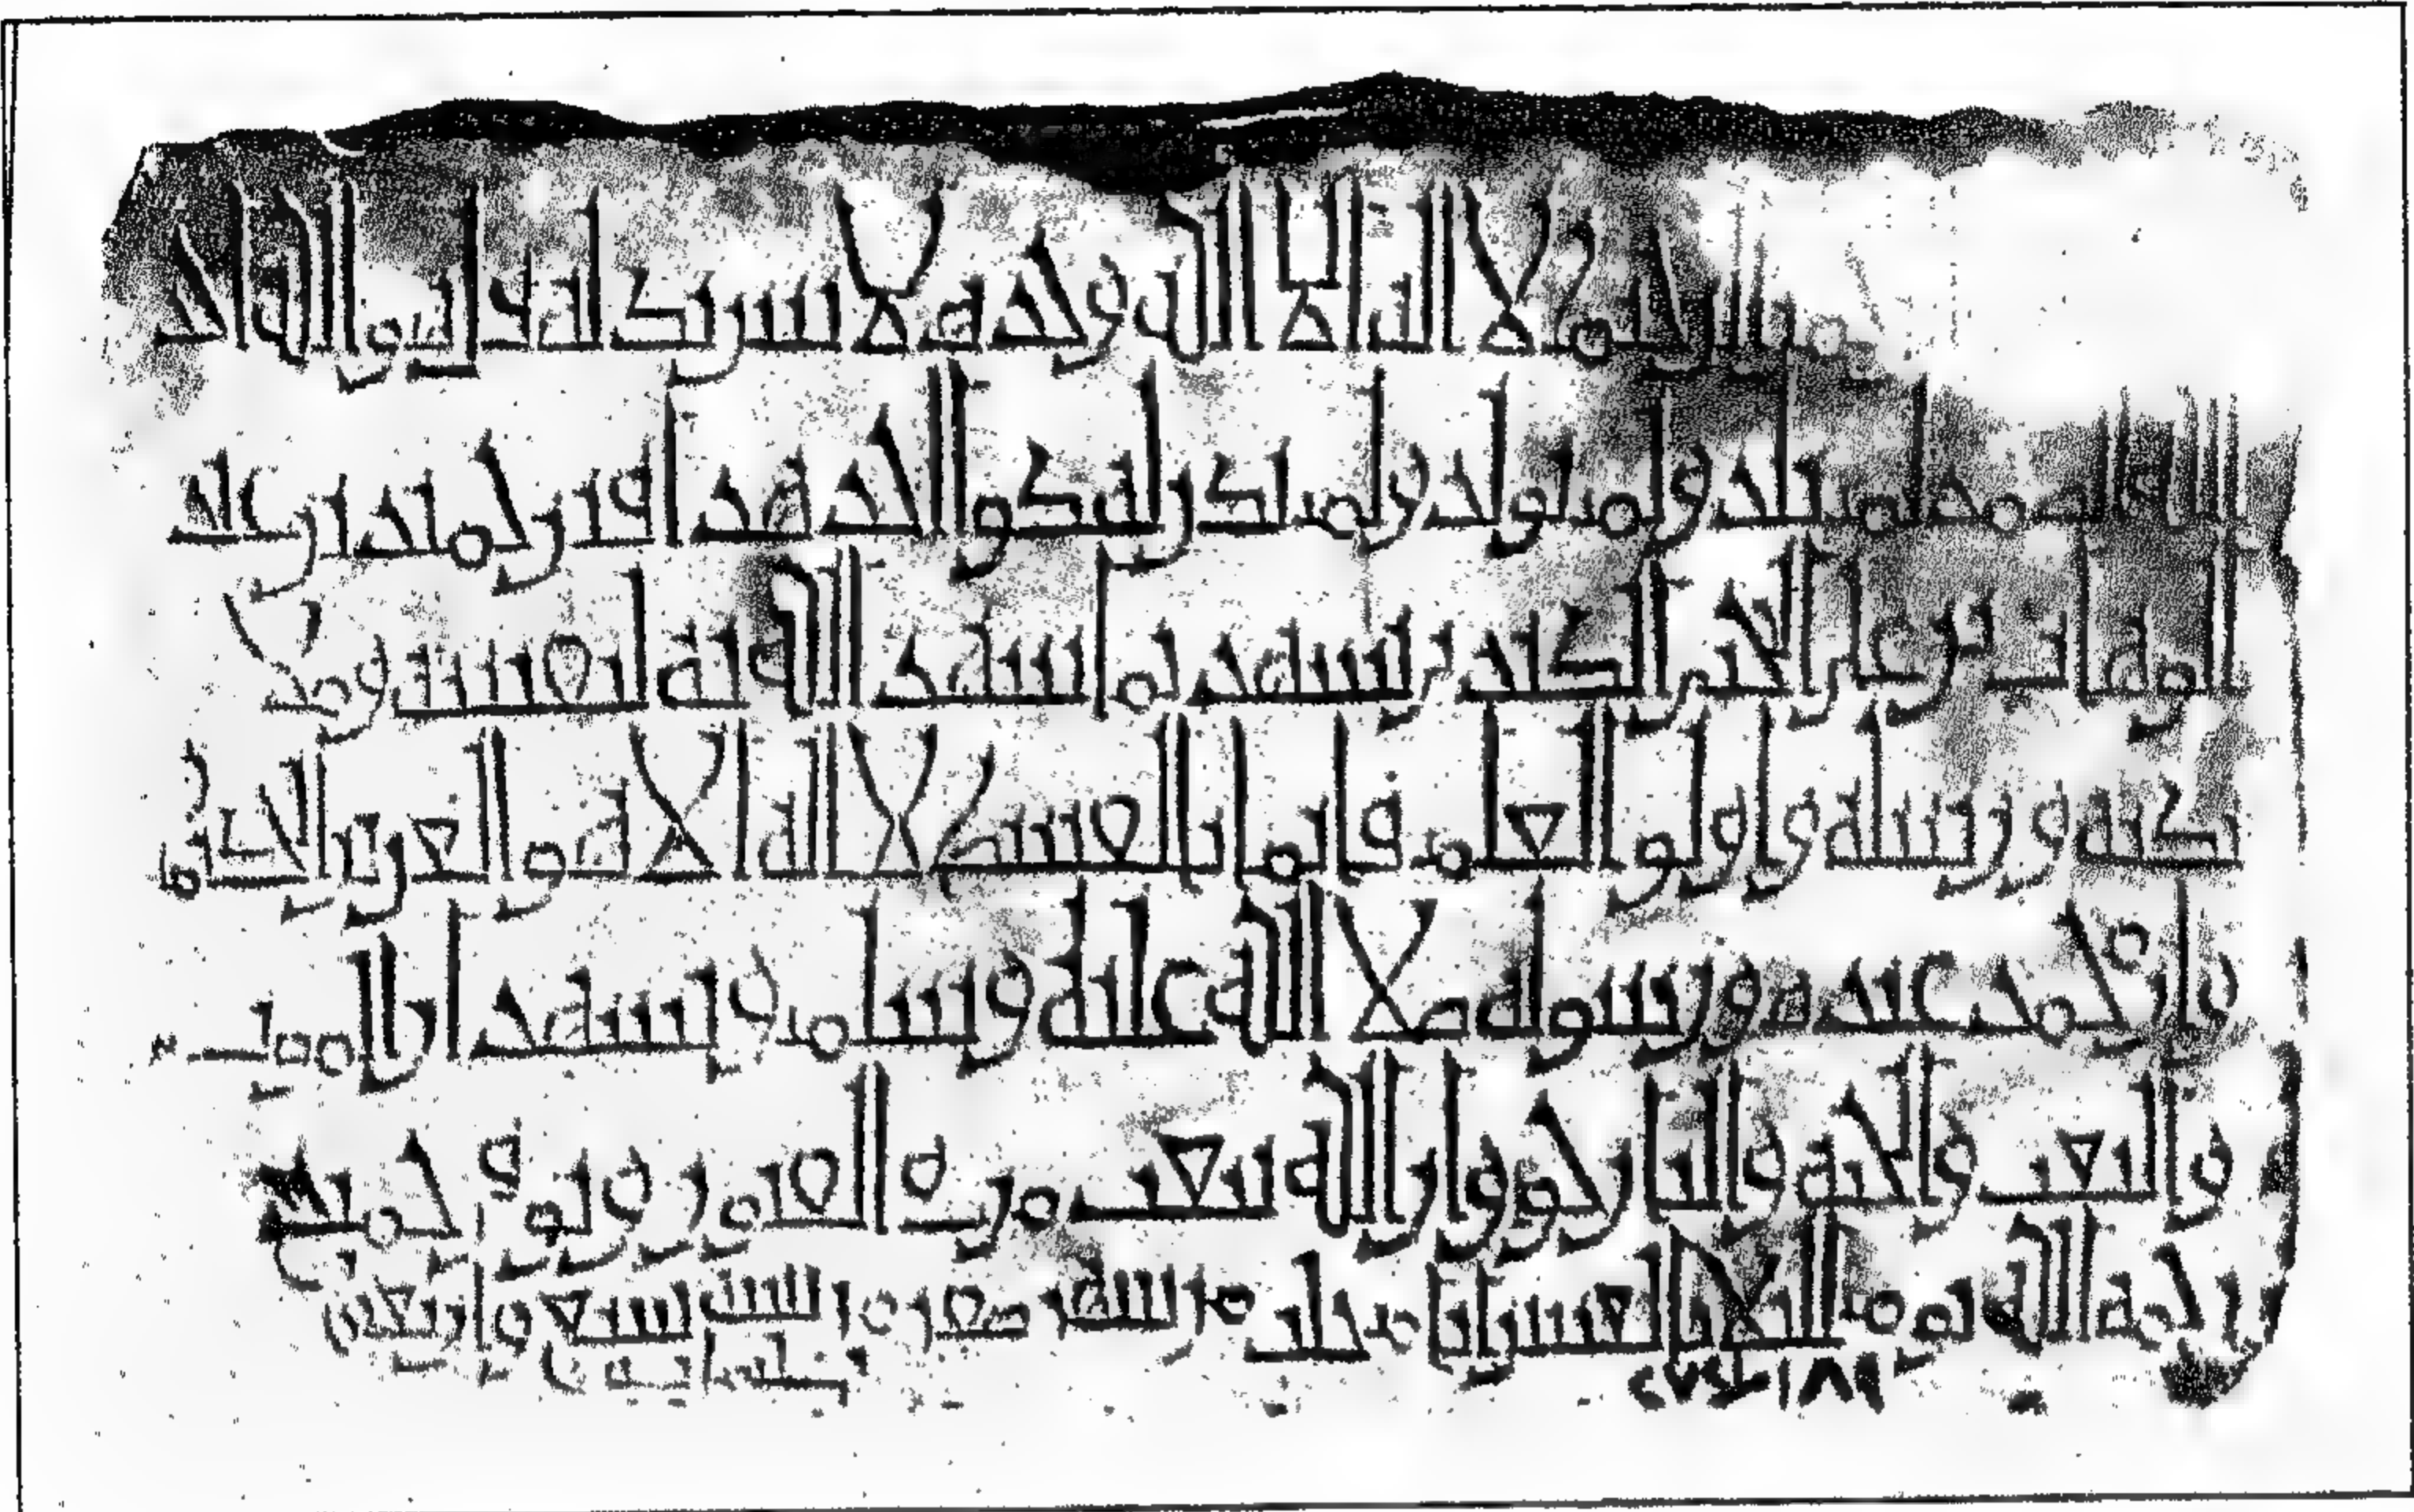 من الرحيم لا اله الا الله وحده لا شريك له قل هو الله احد
الله الصمد لم يلد ولم يولد ولم يكن له كفوا احد هدا قبر بن عبد
الوهاب بن الكندي يشهد بما شهد الله به لنفسه وملا
ئكته ورسله واولوا العلم قايما بالقسط لا اله الا هو العزيز الحكيم
وان محمد عبده ورسوله صلا الله عليه وسلم ويشهد ان الموت
والبعث والجنة والنار حق وان الله يبعث من في القبور وتوفي
رحمه الله يوم الثلاثا من شهر صفر من سنة تسع واربعين